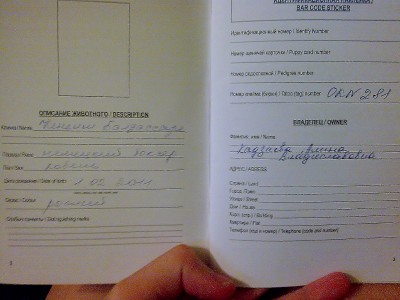 ОПИСАНИЕ ЖИВОТНОГО / DESCRIPTION
Кличка / Name
Порода / Race
Пол / Sex
Дата рождения / Date of birth 1 03 2011
Окрас / Color рыжий
Особые приметы / Distinguishing marks
2
ИДЕНТИФИКАЦИОННАЯ НАКЛЕЙКА /
BAR CODE STICKER
Идентификационный номер / Identity Number
Номер щенячей карточки / Puppy card number
Номер родословной / Pedigree number
Номер клейма (бирки) / Tatoo (tag) number ORN 281
ВЛАДЕЛЕЦ / OWNER
Фамилия, имя / Name
Алина
Владиславовна
АДРЕС / ADDRESS
Страна / Land
Город / Town
Улица / Street
Дом / House
Корп. (стр.) / Building
Квартира / Flat
Телефон (код и номер) / Telephone (code and number)
3